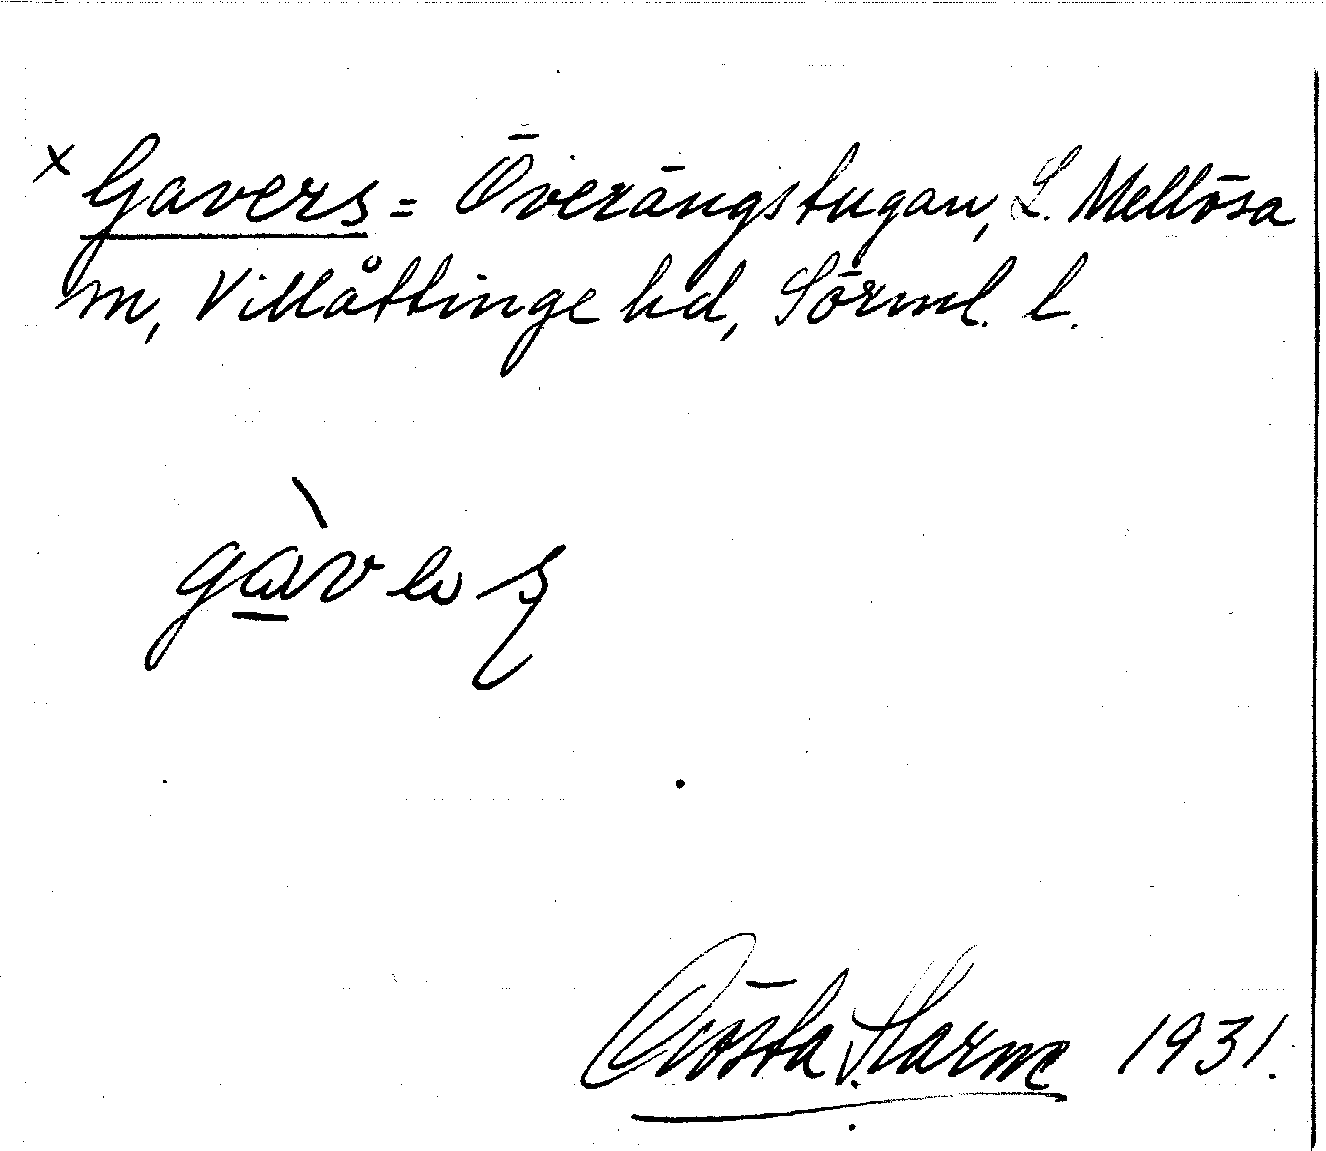 x Gavers = Överängstugan, L. Mellösa
sn, Villåttinge hd, Sörml. l.
gàvers
Gösta v. Harm 1931.